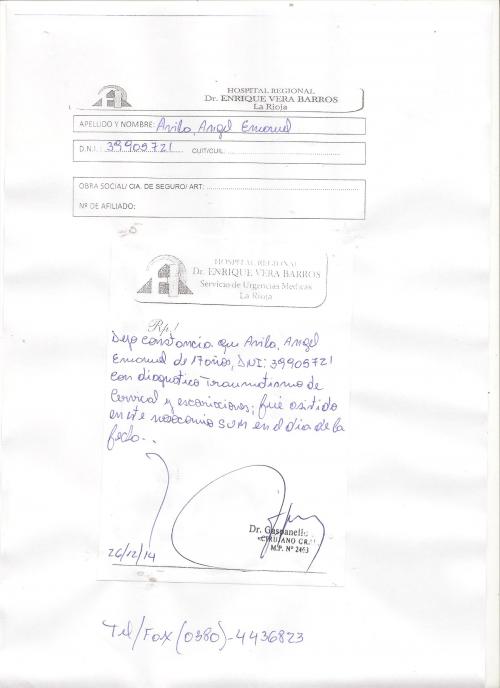 HOSPITAL REGIONAL
Dr. ENRIQUE VERA BARROS
La Rioja
APELLIDO Y NOMBRE: Avila, Angel Emanuel
D.N.I.: 39905721 CUIT/CUIL:
OBRA SOCIAL/ CIA. DE SEGURO/ ART:
Nº DE AFILIADO:
HOSPITAL REGIONAL
Dr. ENRIQUE VERA BARROS
Servicio de Urgencias Médicas
La Rioja
Rp./
Dejo constancia que Avila, Angel
Emanuel de 17 años, DNI: 39905721
con diagnotico Traumatismo de
Cervical y escoriaciones; fué asistido
en este nosocomio SUM en el día de la
fecha..
Dr.
CIRUJANO GRAL
M.P. Nº 2463
26/12/14
Tel/Fax (0380)-4436823